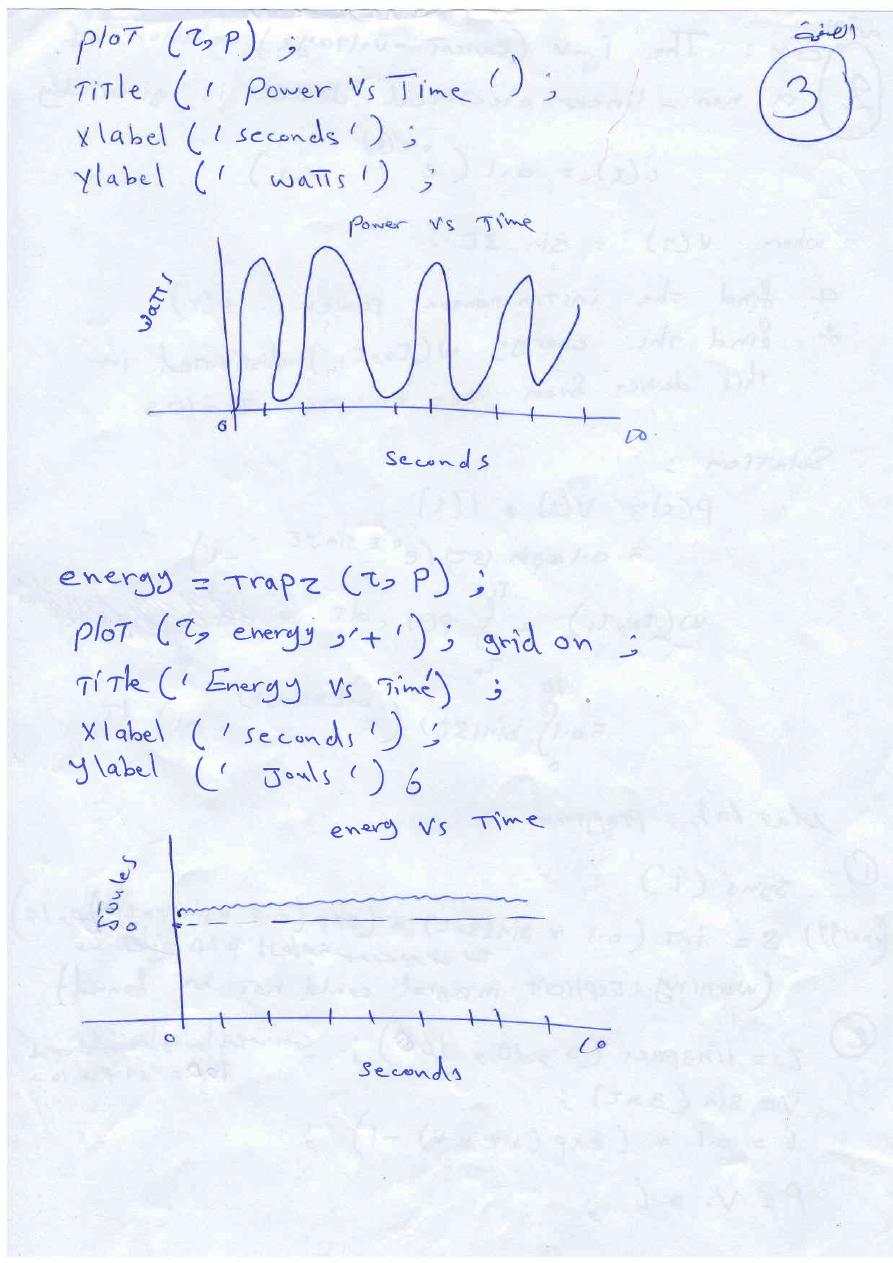 الصفحة
3
plot (t, P) ;
Title (' Power Vs Time ') ;
Xlabel (' seconds ') ;
Ylabel (' watts ') ;
Power vs Time
watts
0
10
seconds
energy = Trapz (t, P) ;
plot (t, energy ,'+ ') ; grid on ;
Title (' Energy Vs Time') ;
Xlabel (' seconds ') ;
Ylabel (' Jouls ') ;
energ vs Time
Joules
0
10
seconds